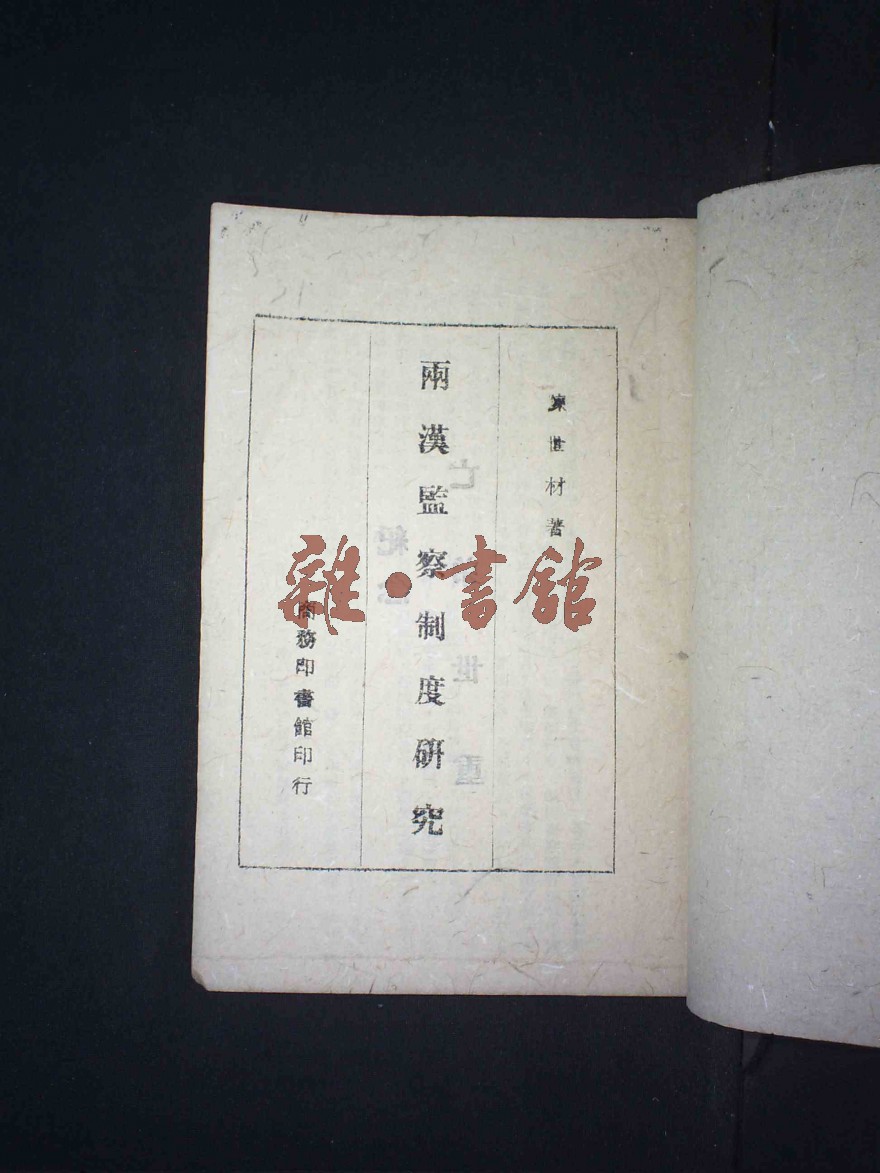 陳世材著
兩漢監察制度研究
商務印書館印行
雜·書館